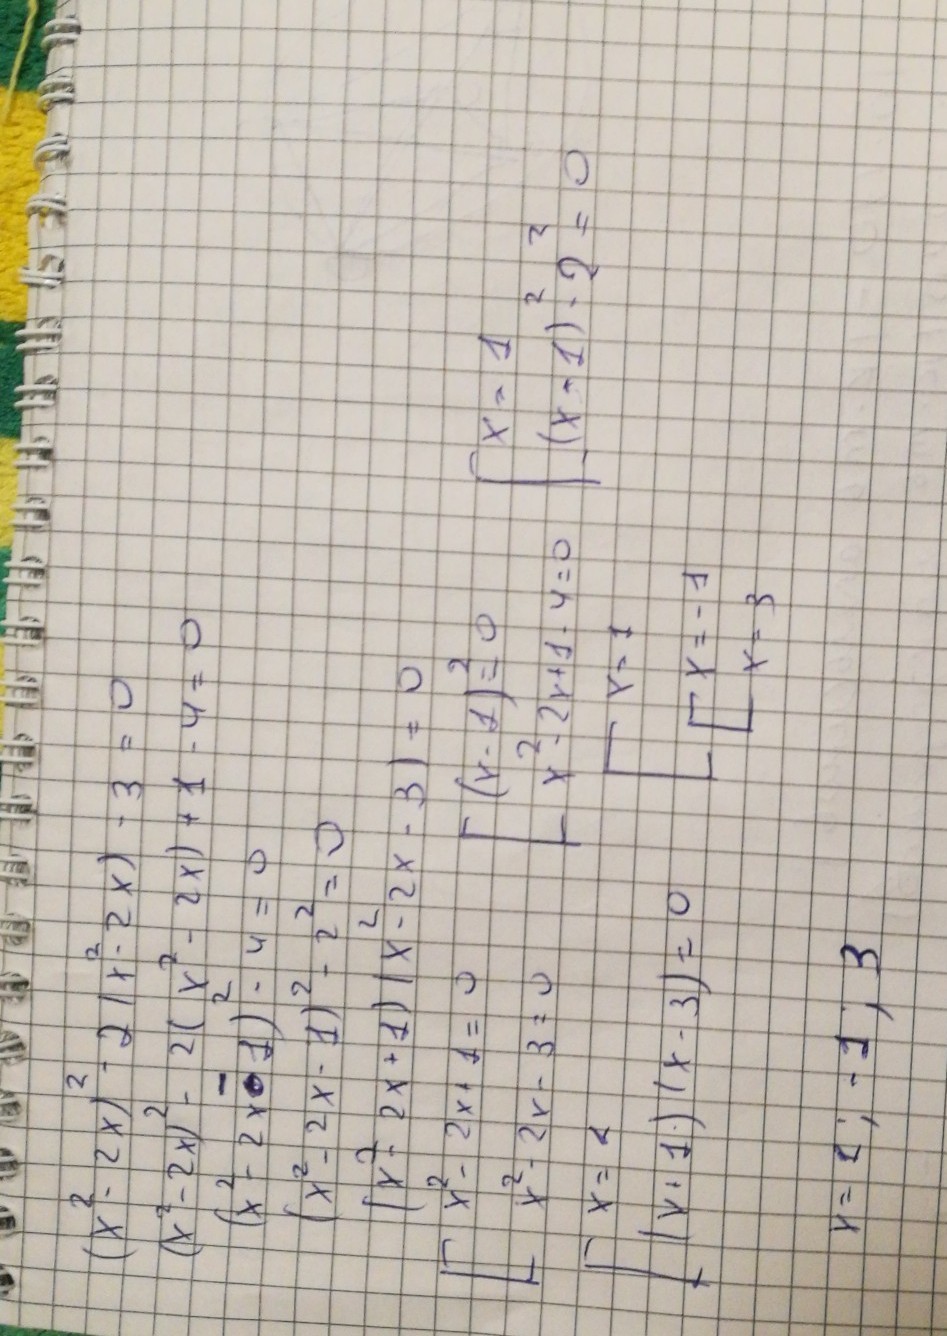 (x² - 2x)² - 2(x² - 2x) - 3 = 0
(x² - 2x)² - 2(x² - 2x) + 1 - 4 = 0
(x² - 2x - 1)² - 4 = 0
(x² - 2x - 1)² - 2² = 0
(x² - 2x + 1)(x² - 2x - 3) = 0
[ x² - 2x + 1 = 0
[ x² - 2x - 3 = 0
[ (x - 1)² = 0
[ x² - 2x + 1 - 4 = 0
[ x = 1
[ (x - 1)² - 2² = 0
[ x = 1
[ (x + 1)(x - 3) = 0
[ x = 1
[ x = -1
[ x = 3
x = 1; -1; 3